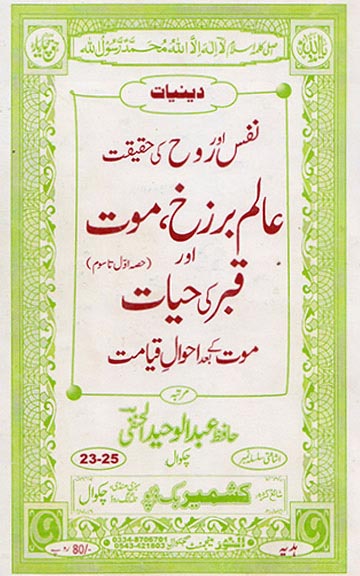 اصلی کلمہ اسلام لَا اِلٰهَ اِلَّا اللّٰهُ مُحَمَّدٌ رَّسُوْلُ اللّٰه
دینیات
نفس اور روح کی حقیقت
عالم برزخ، موت
اور (حصہ اوّل تا سوم)
قبر کی حیات
موت کے بعد احوالِ قیامت
مرتبہ
حافظ عبدالوحید الحنفی
چکوال
اشاعتی سلسلہ نمبر 23-25
شائع کردہ کشمیر بک ڈپو سبزی منڈی تلہ گنگ روڈ چکوال
0334-8706701
0543-421803
ہدیہ 80/- روپے